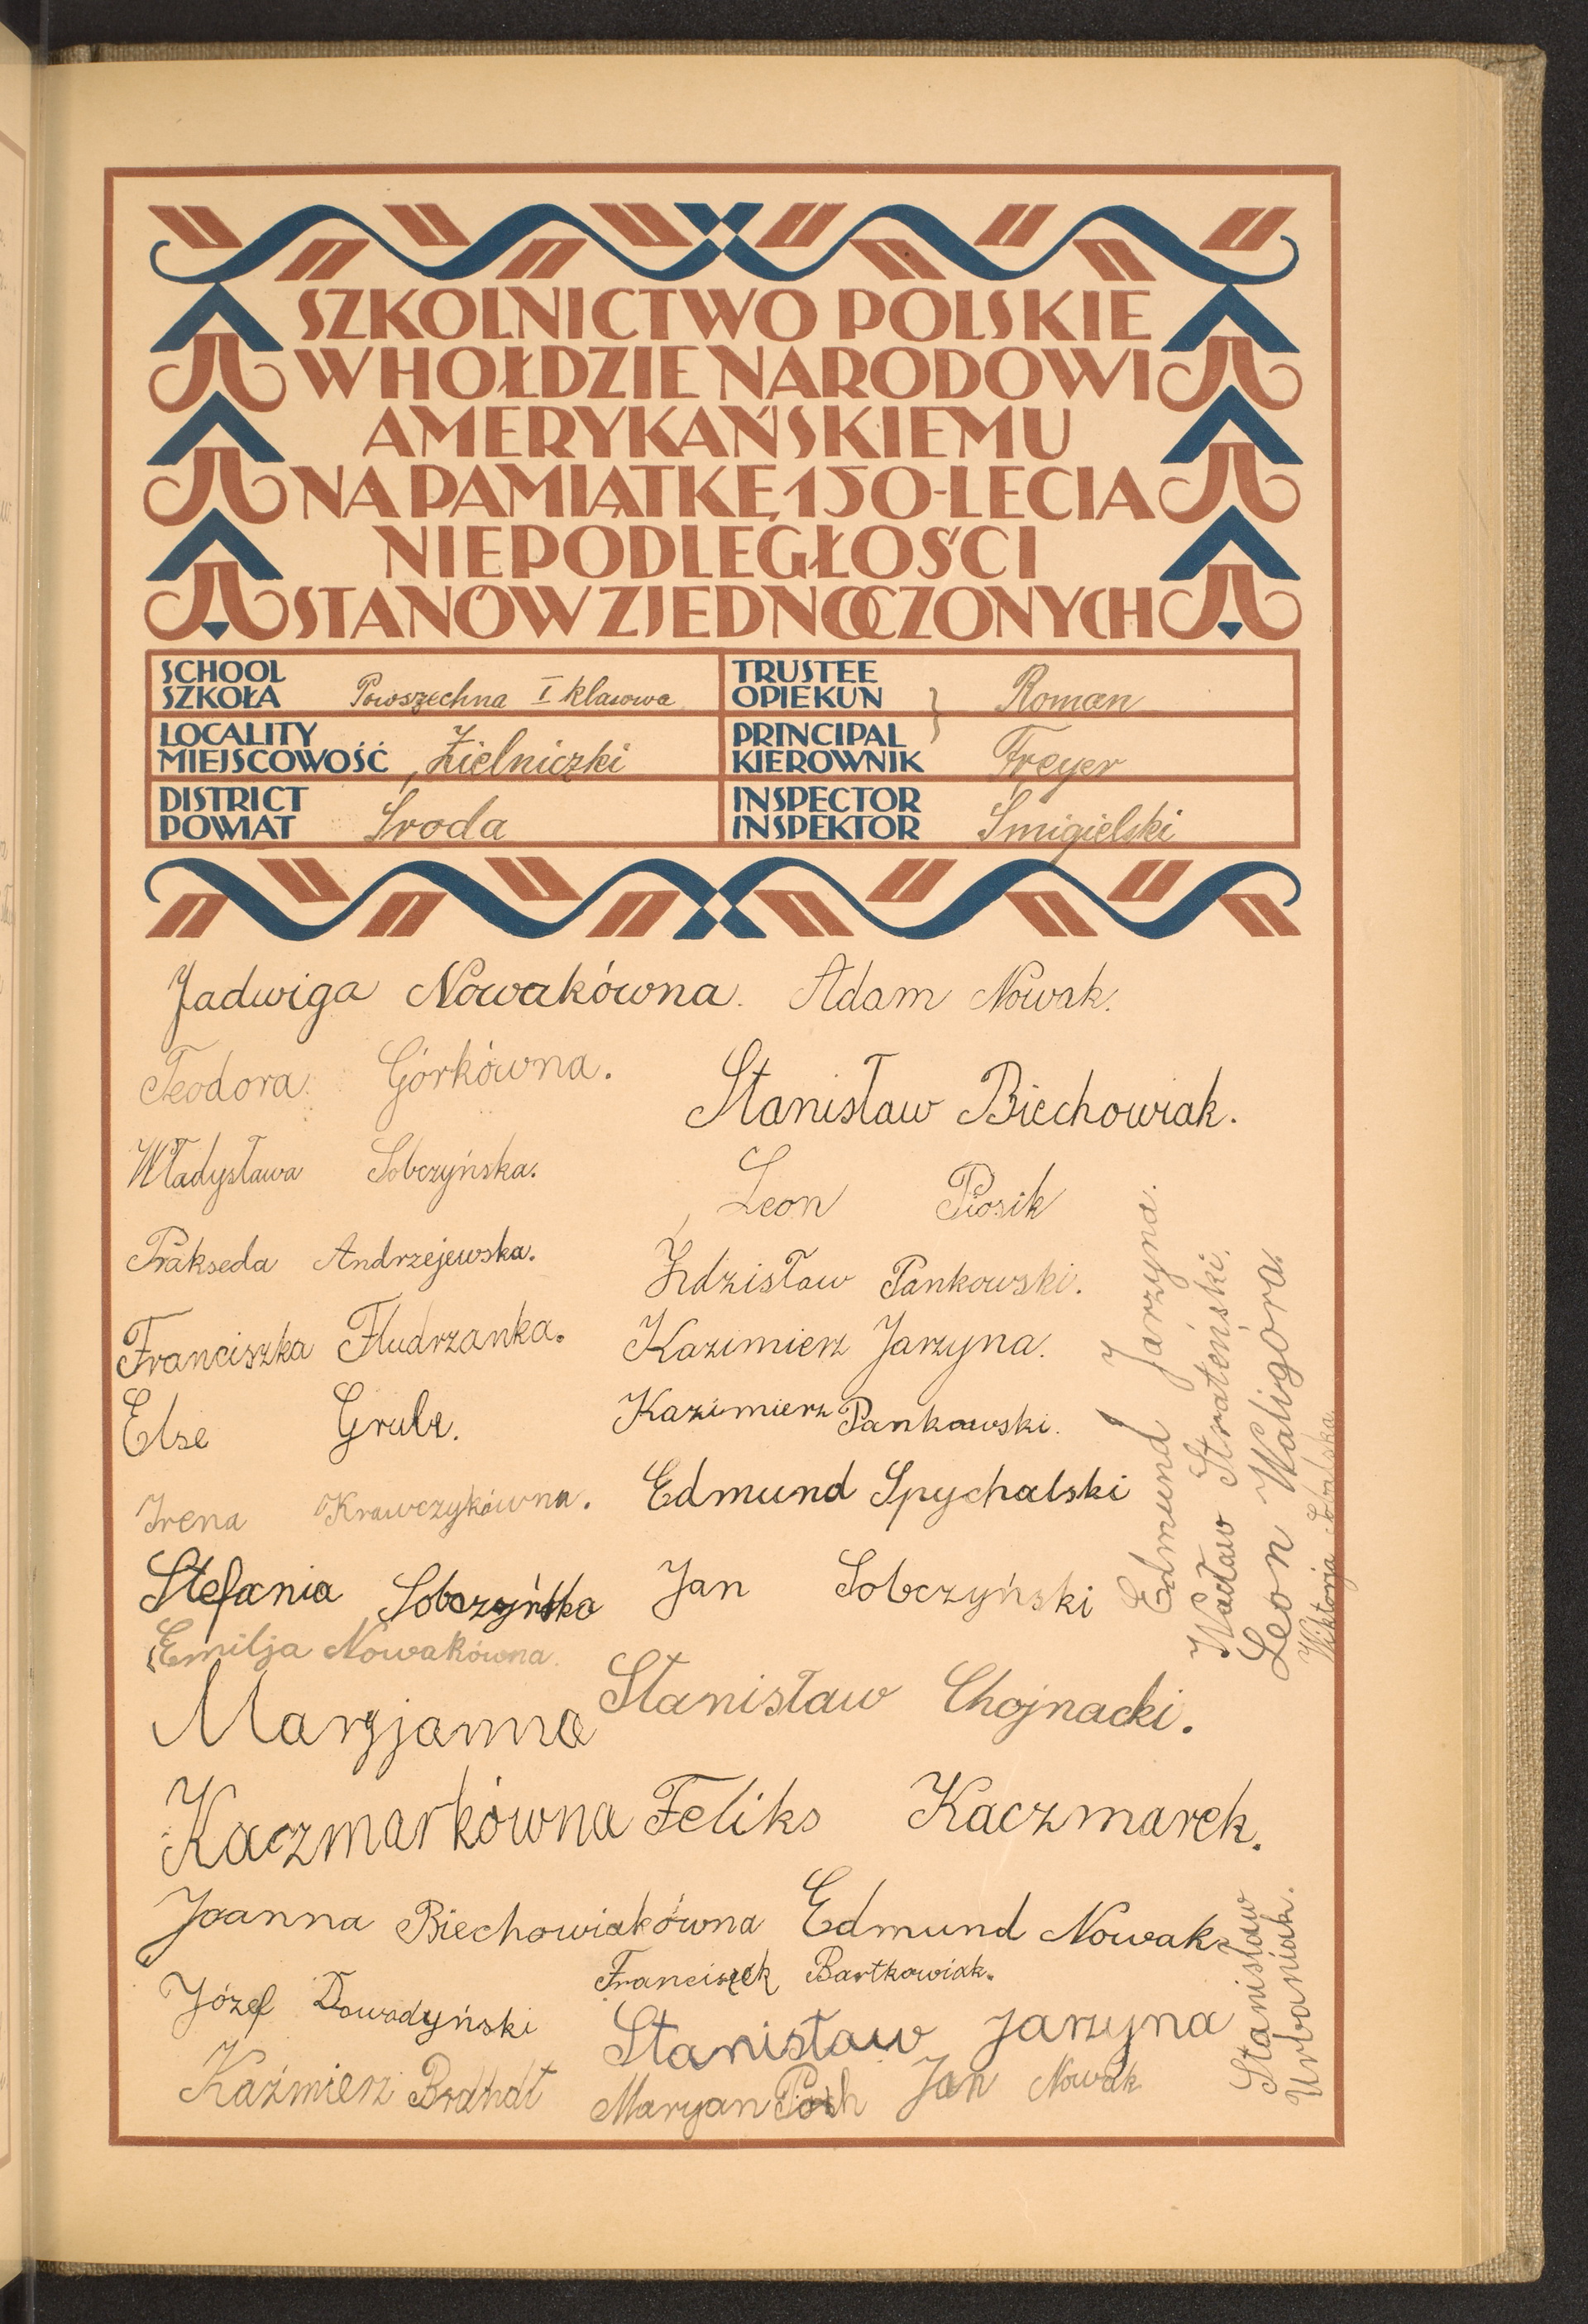 SZKOLNICTWO POLSKIE
W HOŁDZIE NARODOWI
AMERYKAŃSKIEMU
NA PAMIĄTKĘ 150-LECIA
NIEPODLEGŁOŚCI
STANÓW ZJEDNOCZONYCH
SCHOOL
SZKOŁA Powszechna I klasowa
TRUSTEE
OPIEKUN } Roman
LOCALITY
MIEJSCOWOŚĆ Zielniczki
PRINCIPAL
KIEROWNIK Freyer
DISTRICT
POWIAT Środa
INSPECTOR
INSPEKTOR Śmigielski
Jadwiga Nowakówna. Adam Nowak.
Teodora Górkówna.
Stanisław Biechowiak.
Władysława Sobczyńska.
Leon Piosik
Prakseda Andrzejewska.
Zdzisław Pankowski.
Franciszka Fludrzanka.
Kazimierz Jarzyna.
Else Grulz.
Kazimierz Pankowski.
Irena Krawczykówna.
Edmund Spychalski
Stefania Sobczyńska
Jan Sobczyński
Emilja Nowakówna.
Stanisław Chojnacki.
Maryjanna
Kaczmarkówna
Feliks Kaczmarek.
Joanna Biechowiakówna
Edmund Nowak
Franciszek Bartkowiak.
Józef Dowodyński
Stanisław Jarzyna
Kaźmierz Brandt
Maryan Jan Nowak
Edmund Jarzyna.
Wacław Strateński.
Leon Waligóra.
Wiktorja Sobalska
Stanisław
Urbaniak.